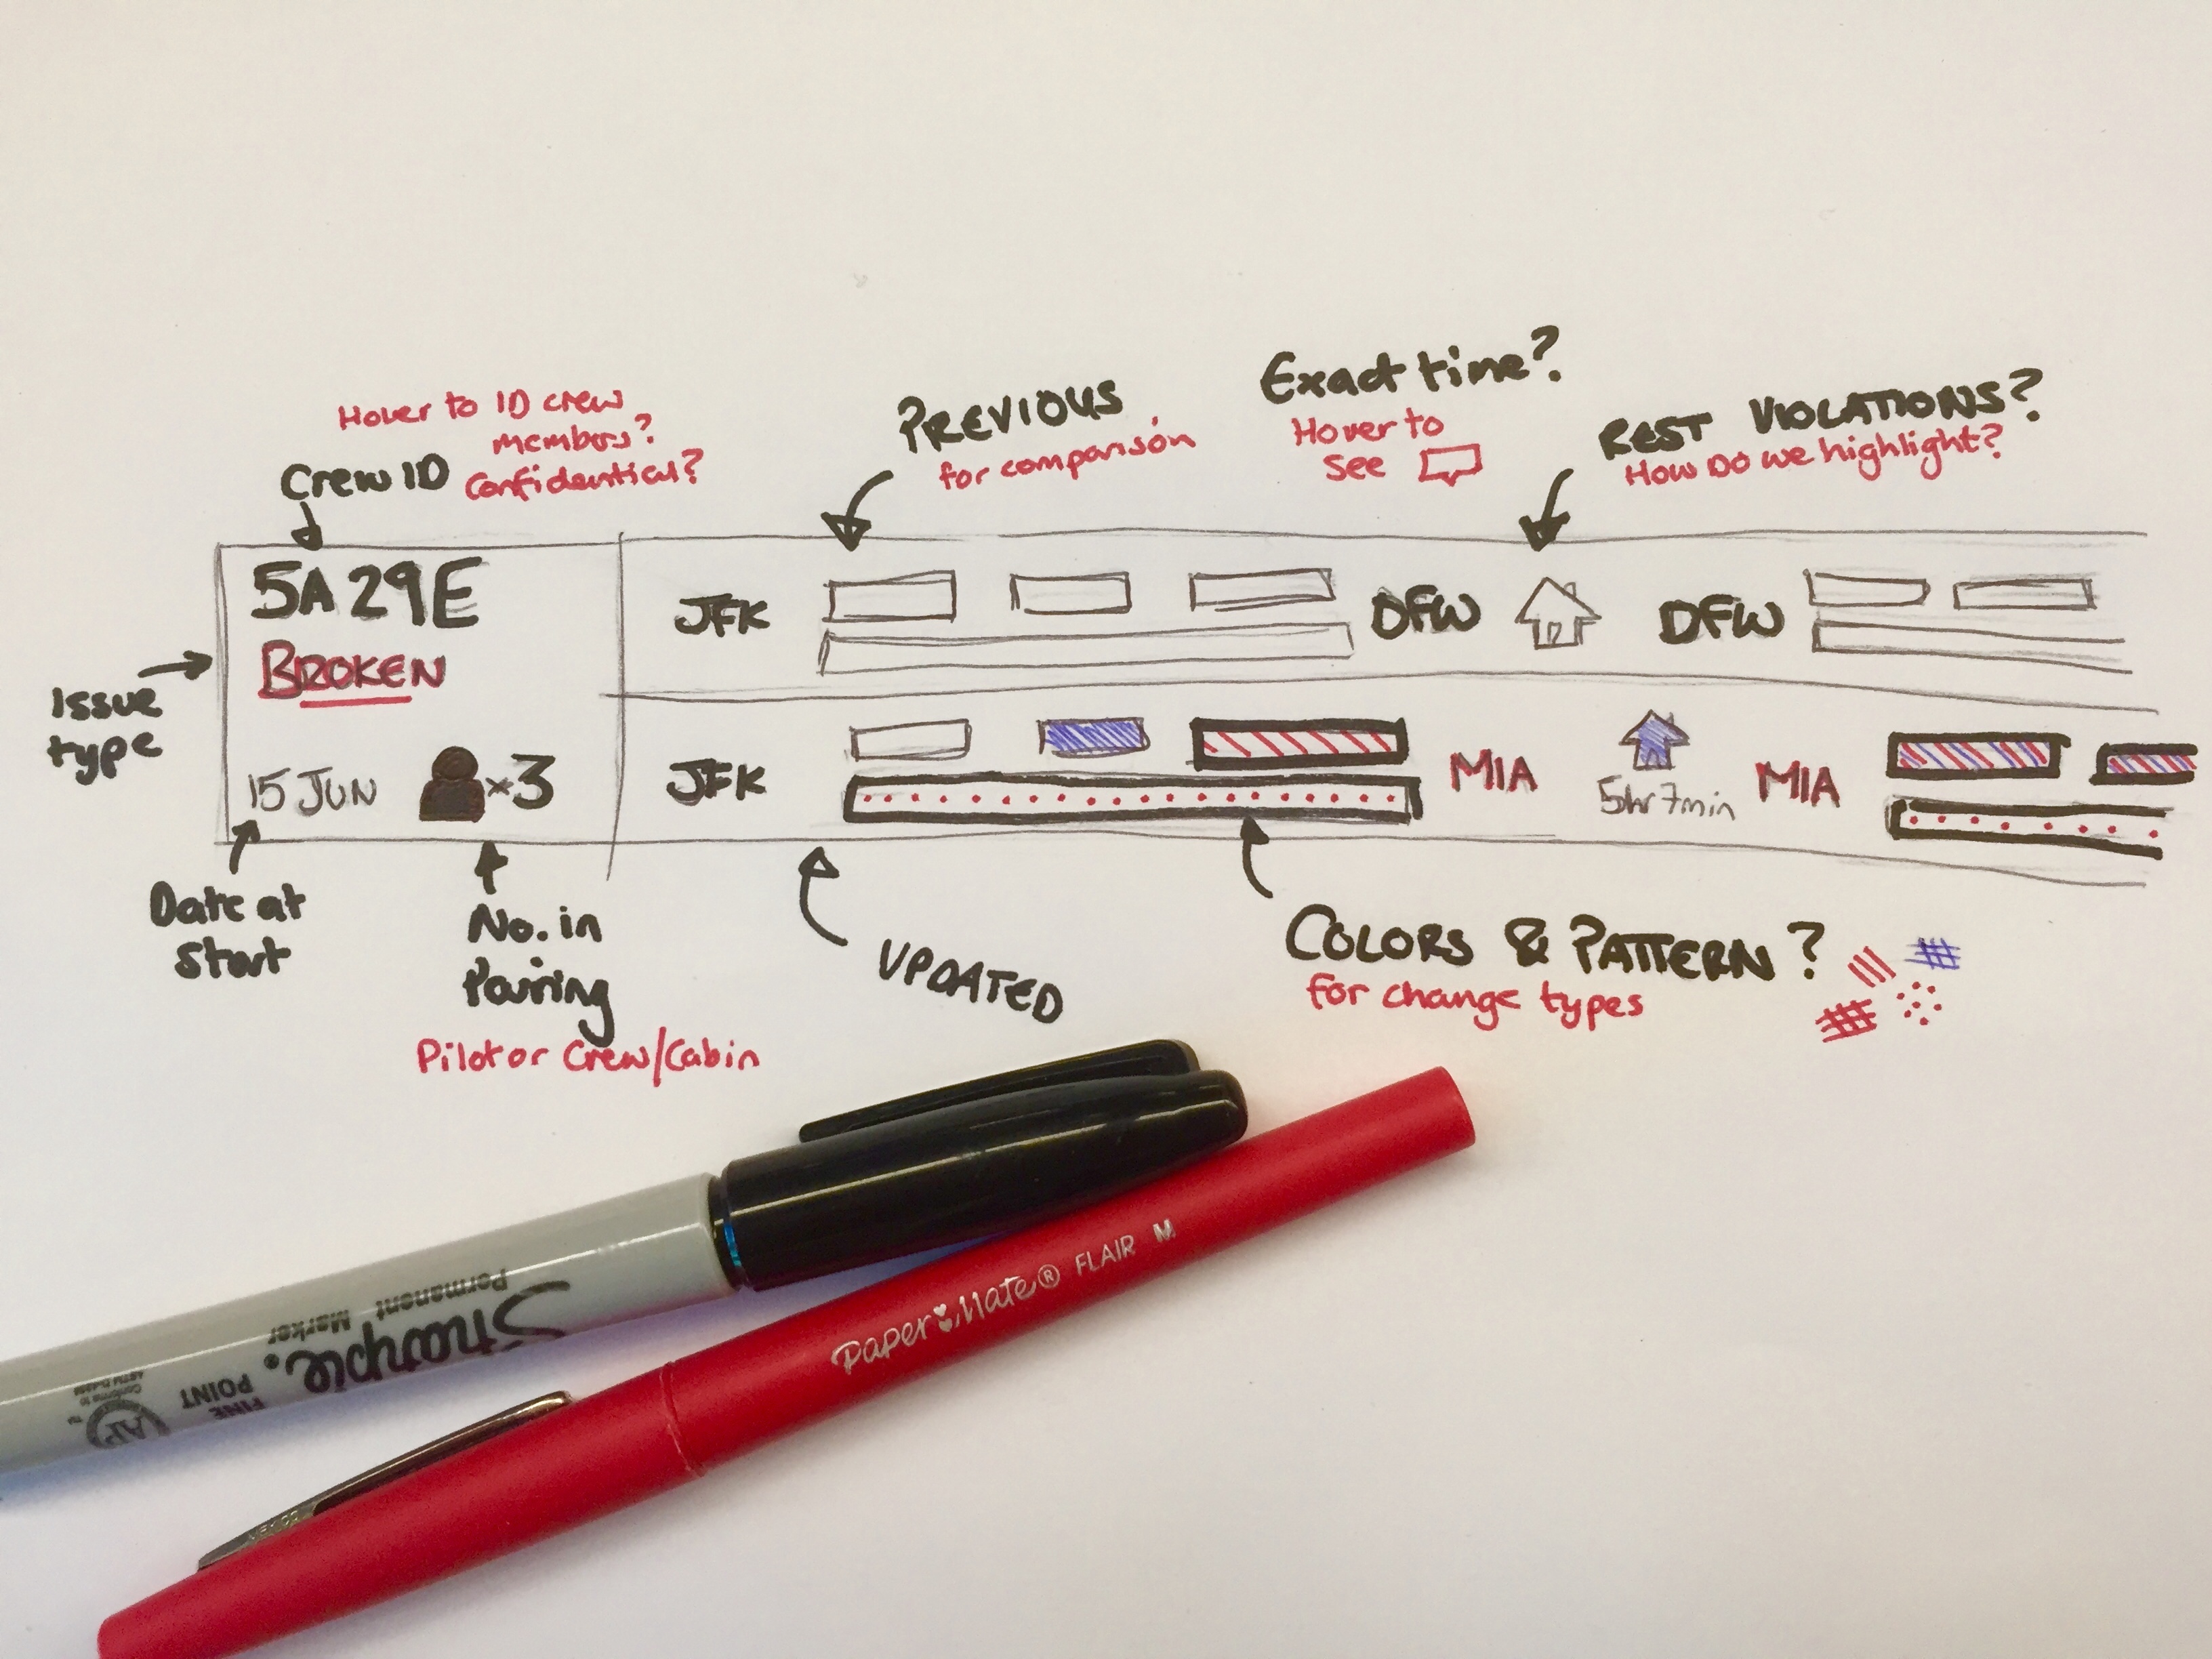 Hover to ID crew
members?
Confidential?
Crew ID
PREVIOUS
for comparison
Exact time?
Hover to
see
REST VIOLATIONS?
How Do we highlight?
5A29E
BROKEN
Issue
type
15 JUN
×3
JFK
DFW
DFW
JFK
MIA
5hr 7min
MIA
Date at
Start
No. in
Pairing
Pilot or Crew/Cabin
UPDATED
COLORS & PATTERN?
for change types
Sharpie.
Permanent Marker
FINE
POINT
AP
Conforms to
ASTM D-4236
Paper Mate® FLAIR M